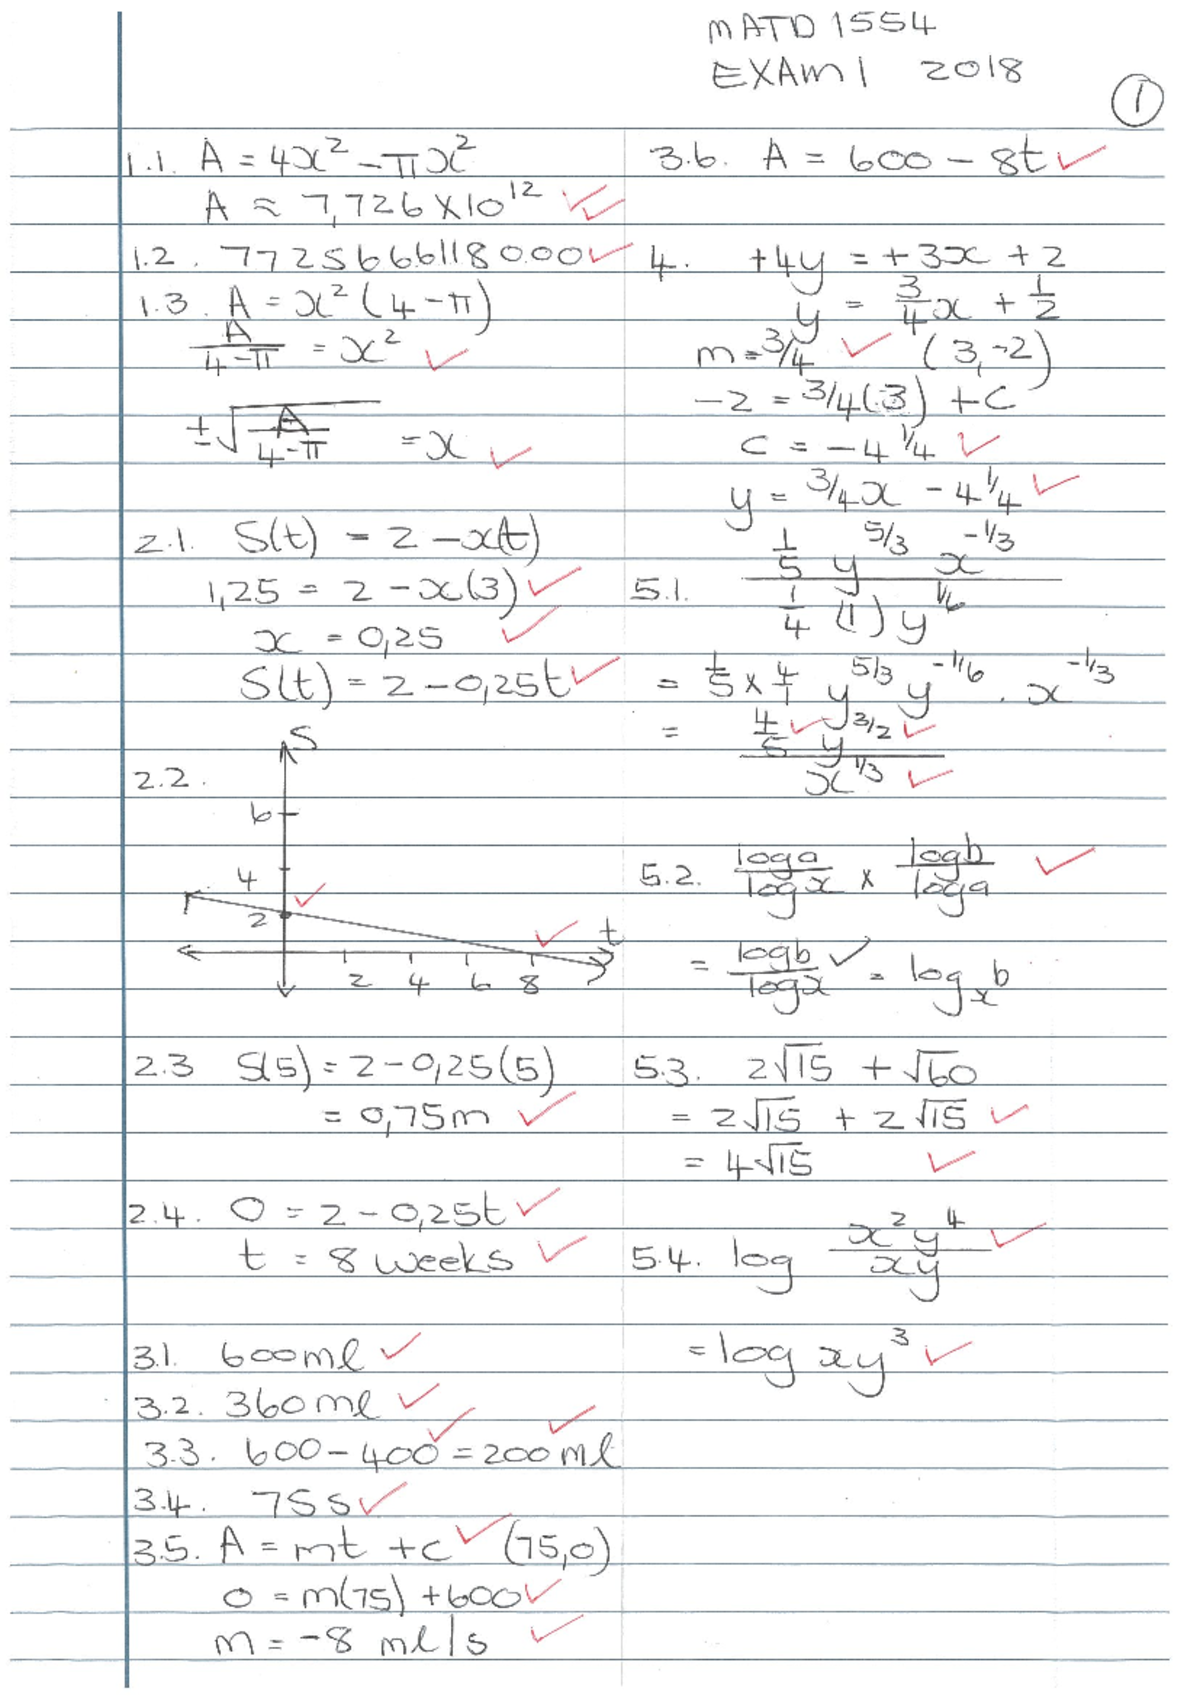 MATD 1554
EXAM 1 2018
1
1.1. A = 4x² - πx²
A ≈ 7,726 x 10¹²
1.2. 7725666118000
1.3. A = x² (4 - π)
A/(4-π) = x²
±√(A/(4-π)) = x
2.1. S(t) = 2 - x(t)
1,25 = 2 - x(3)
x = 0,25
S(t) = 2 - 0,25t
2.2.
S
6
4
2
t
2 4 6 8
2.3 S(5) = 2 - 0,25(5)
= 0,75m
2.4. 0 = 2 - 0,25t
t = 8 weeks
3.1. 600ml
3.2. 360ml
3.3. 600 - 400 = 200ml
3.4. 75s
3.5. A = mt + c (75,0)
0 = m(75) + 600
m = -8 ml/s
3.6. A = 600 - 8t
4. +4y = +3x + 2
y = 3/4 x + 1/2
m = 3/4 (3,-2)
-2 = 3/4(3) + c
c = -4 1/4
y = 3/4x - 4 1/4
5.1. (1/5 y^5/3 x^-1/3) / (1/4 (1) y^1/6)
= 1/5 x 4/1 y^5/3 y^-1/6 . x^-1/3
= (4/5 y^3/2) / x^1/3
5.2. loga/logx x logb/loga
= logb/logx = log_x b
5.3. 2√15 + √60
= 2√15 + 2√15
= 4√15
5.4. log x²y⁴/xy
= log xy³